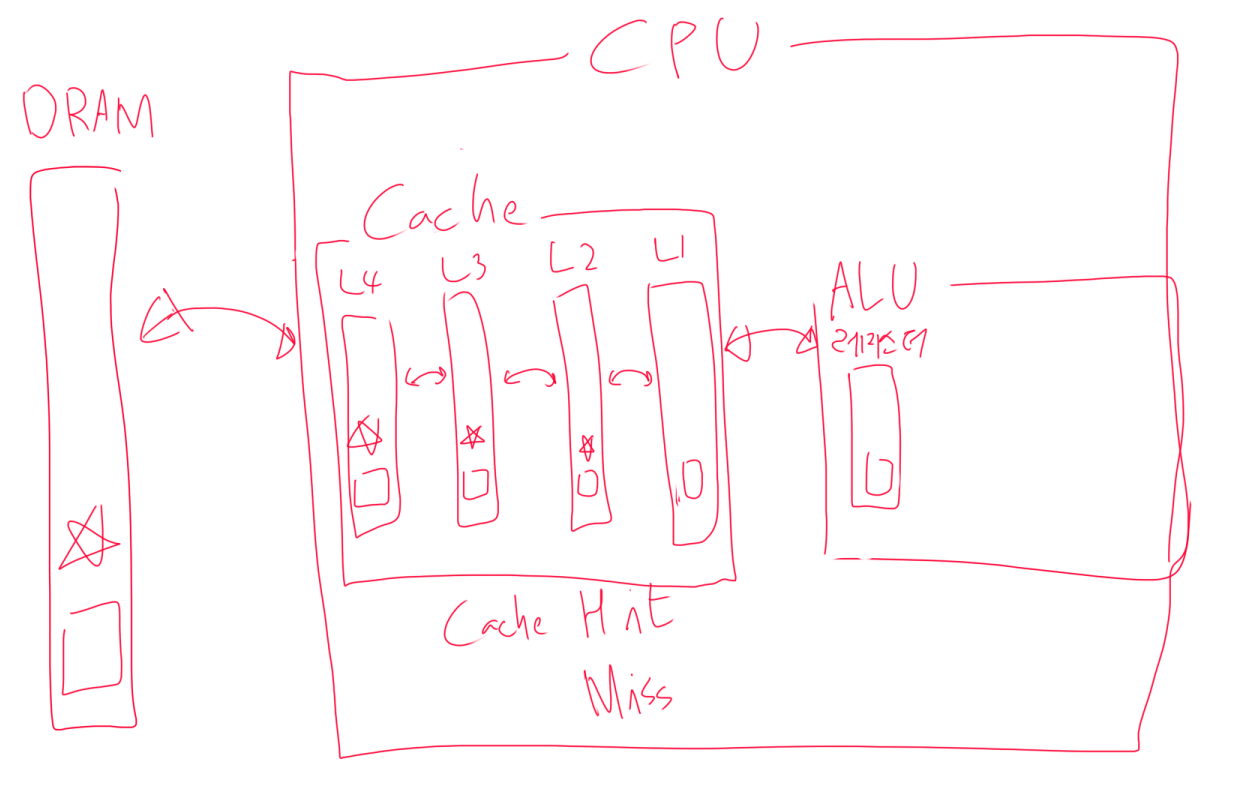 CPU
DRAM
Cache
L4 L3 L2 L1
ALU
레지스터
Cache Hit
Miss